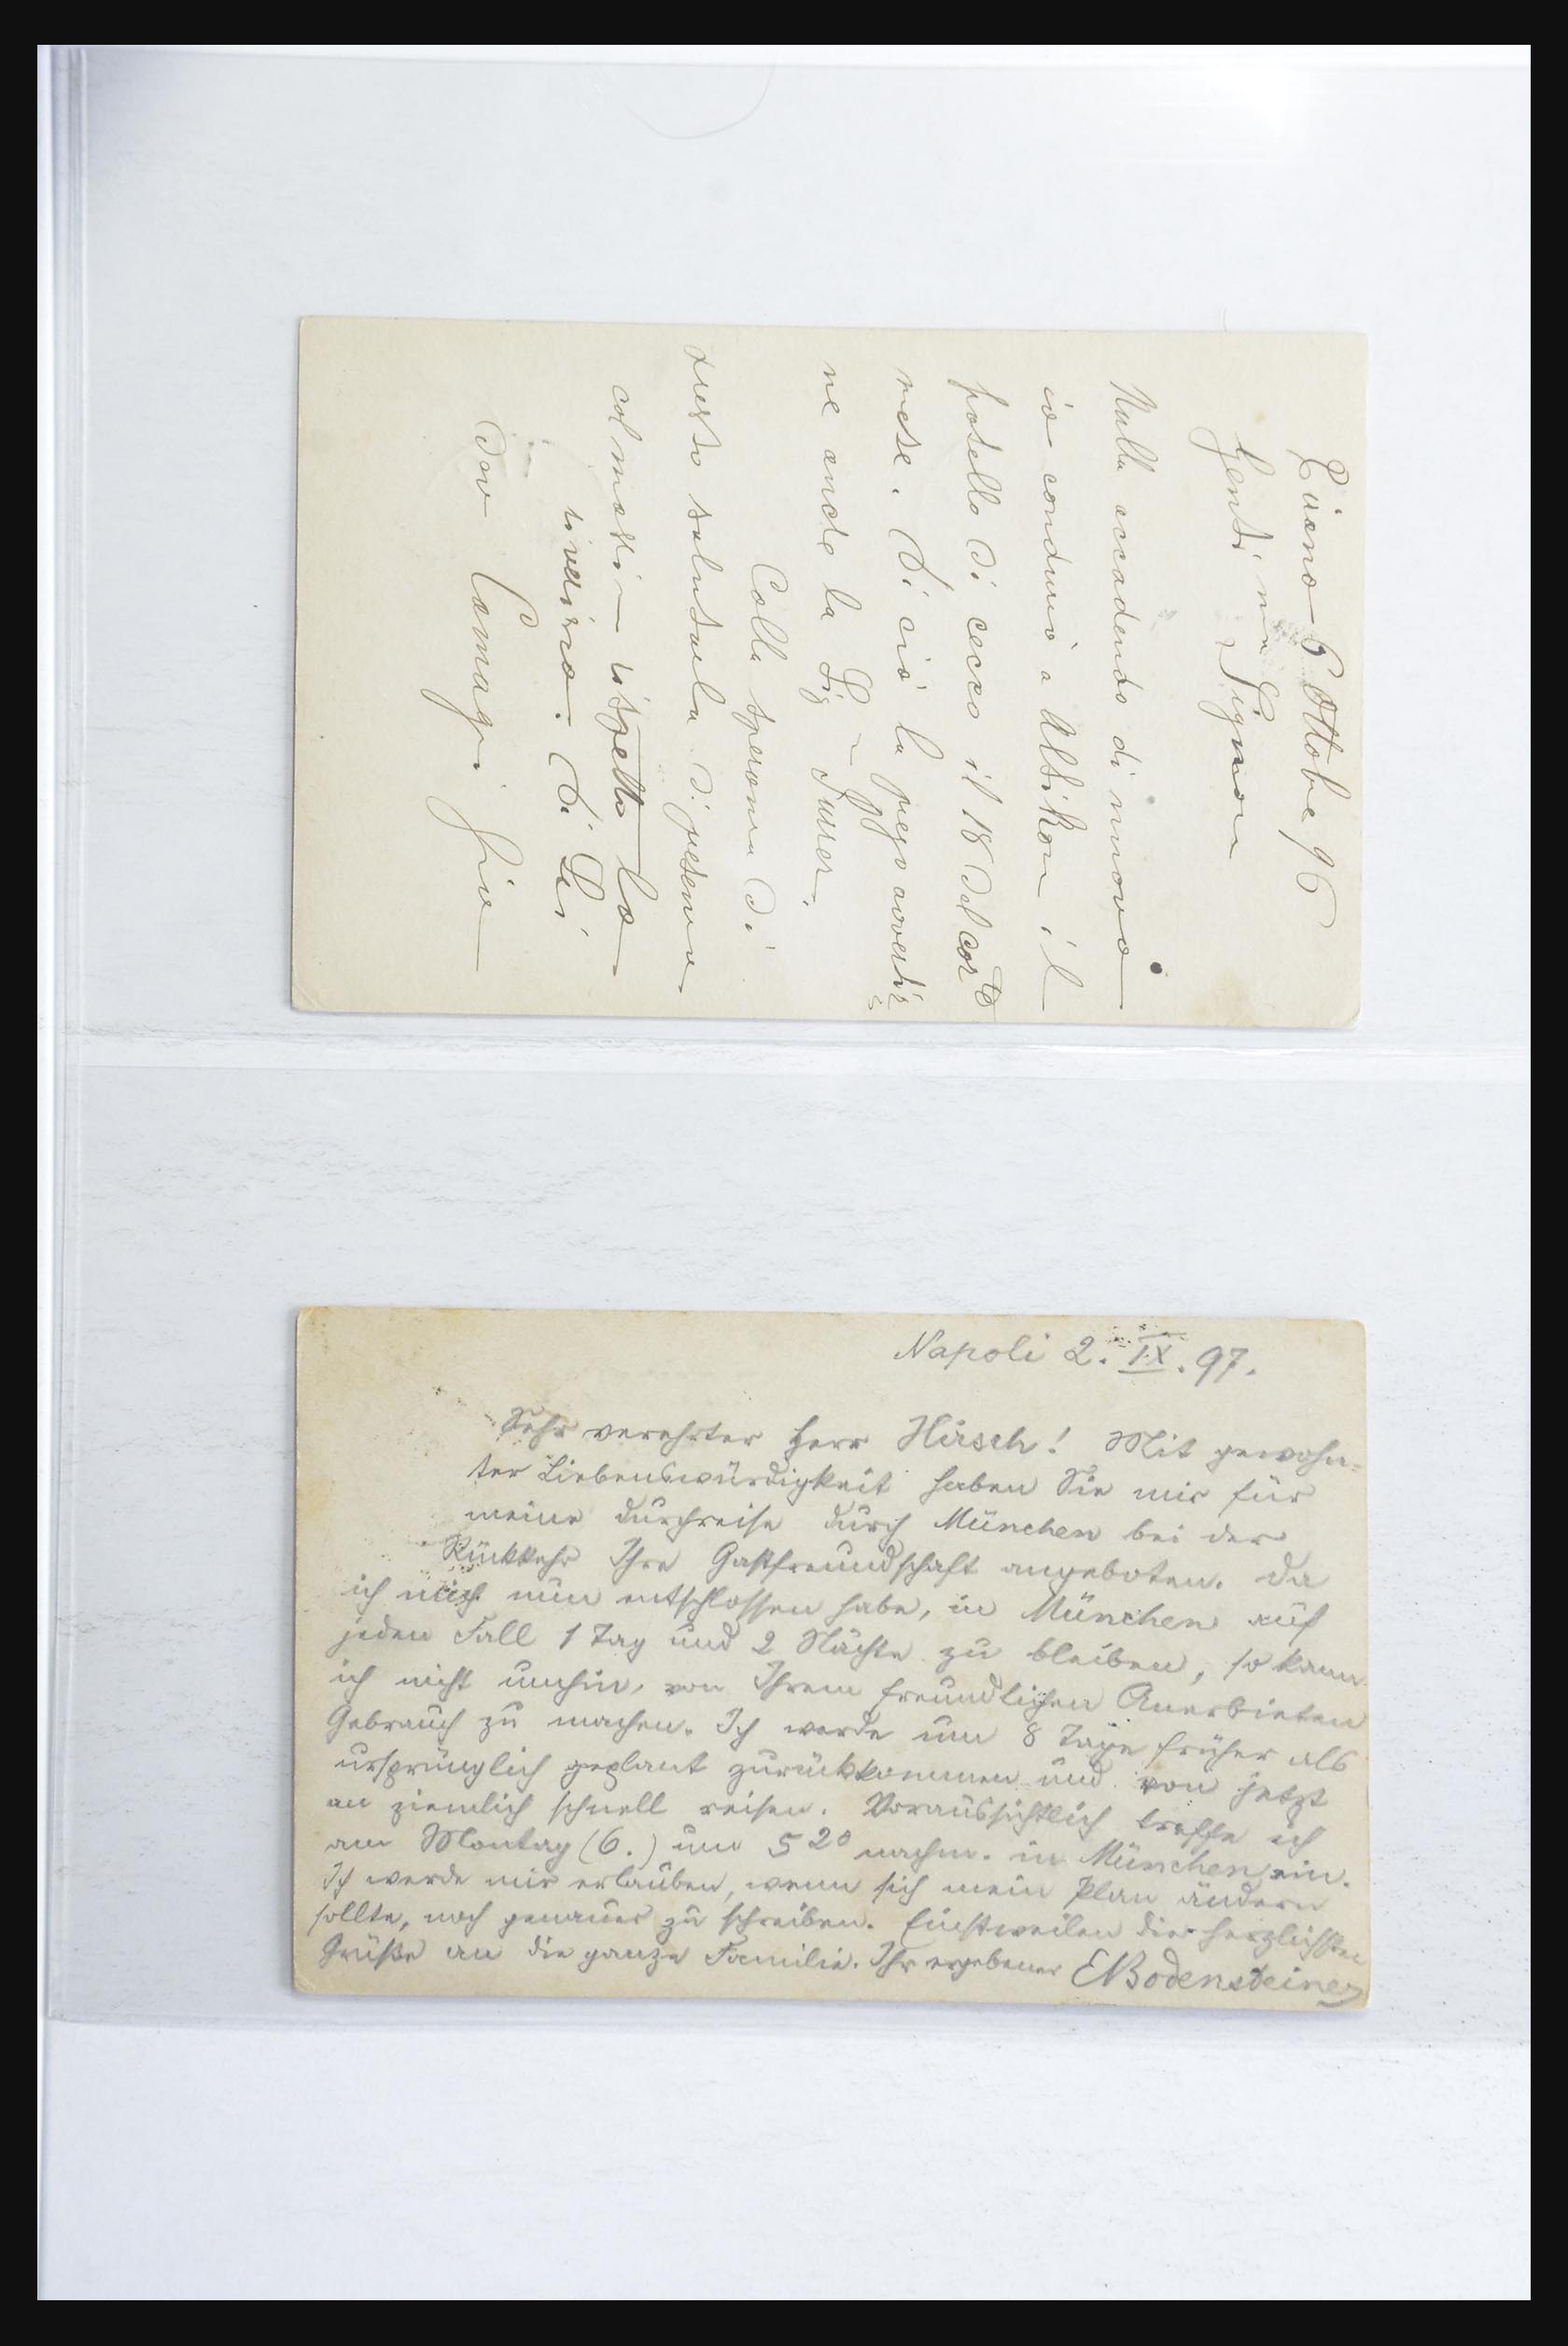 6 Ottobre 96
Gentil.ma Signora
Nulla accadendo di nuovo
io condurrò a Altikon il
fratello di Cecco il 18 del cor.te
mese. Di ciò la prego avvertir
ne anche la Sig.
Colla speranza di
presto salutarla di presenza
col massimo rispetto la
riverisco. Di Lei
Dev
Napoli 2. IX. 97.
Sehr verehrter Herr Hirsch! Mit gewohn-
ter Liebenswürdigkeit haben Sie mir für
meine Durchreise durch München bei der
Rückkehr Ihre Gastfreundschaft angeboten. Da
ich mich nun entschlossen habe, in München auf
jeden Fall 1 Tag und 2 Nächte zu bleiben, so kann
ich nicht umhin, von Ihrem freundlichen Anerbieten
Gebrauch zu machen. Ich werde um 8 Tage früher als
ursprünglich geplant zurückkommen und von jetzt
an ziemlich schnell reisen. Voraussichtlich treffe ich
am Montag (6.) um 5 20 nachm. in München ein.
Ich werde mir erlauben, wenn sich mein Plan ändern
sollte, noch genauer zu schreiben. Einstweilen die herzlichsten
Grüße an die ganze Familie. Ihr ergebener EBodensteiner